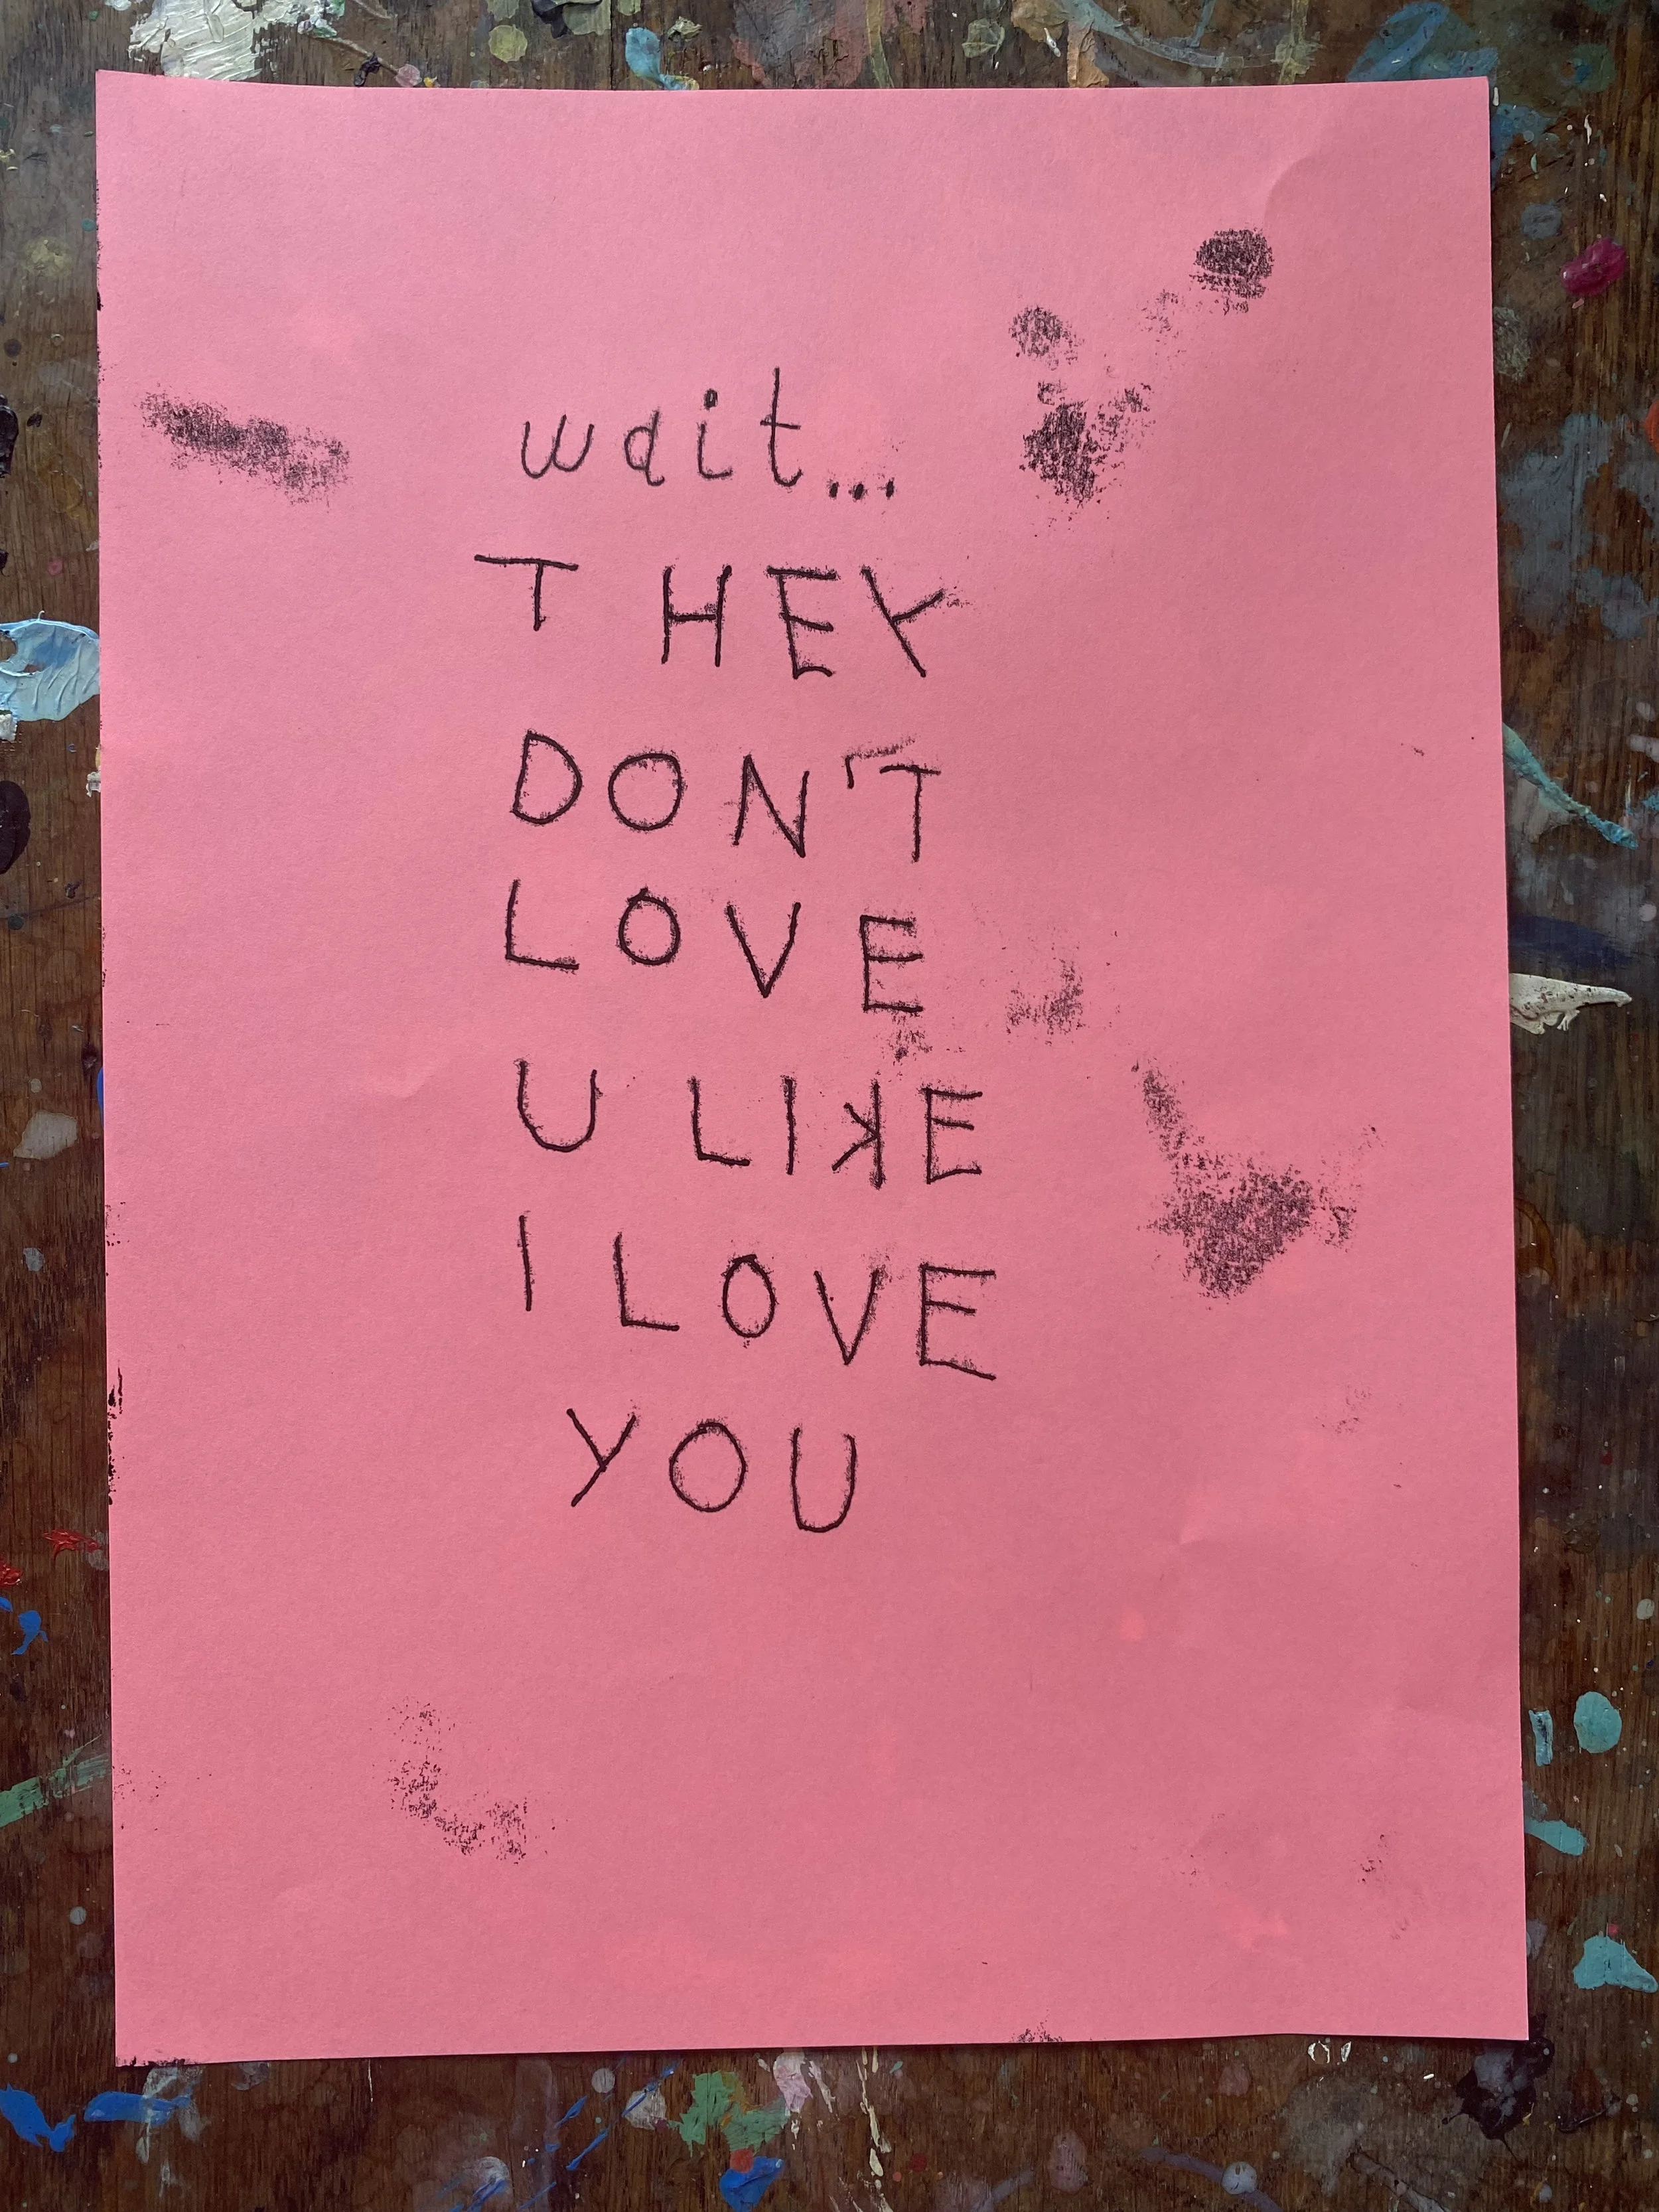 wait...
THEY
DON'T
LOVE
U LIKE
I LOVE
YOU